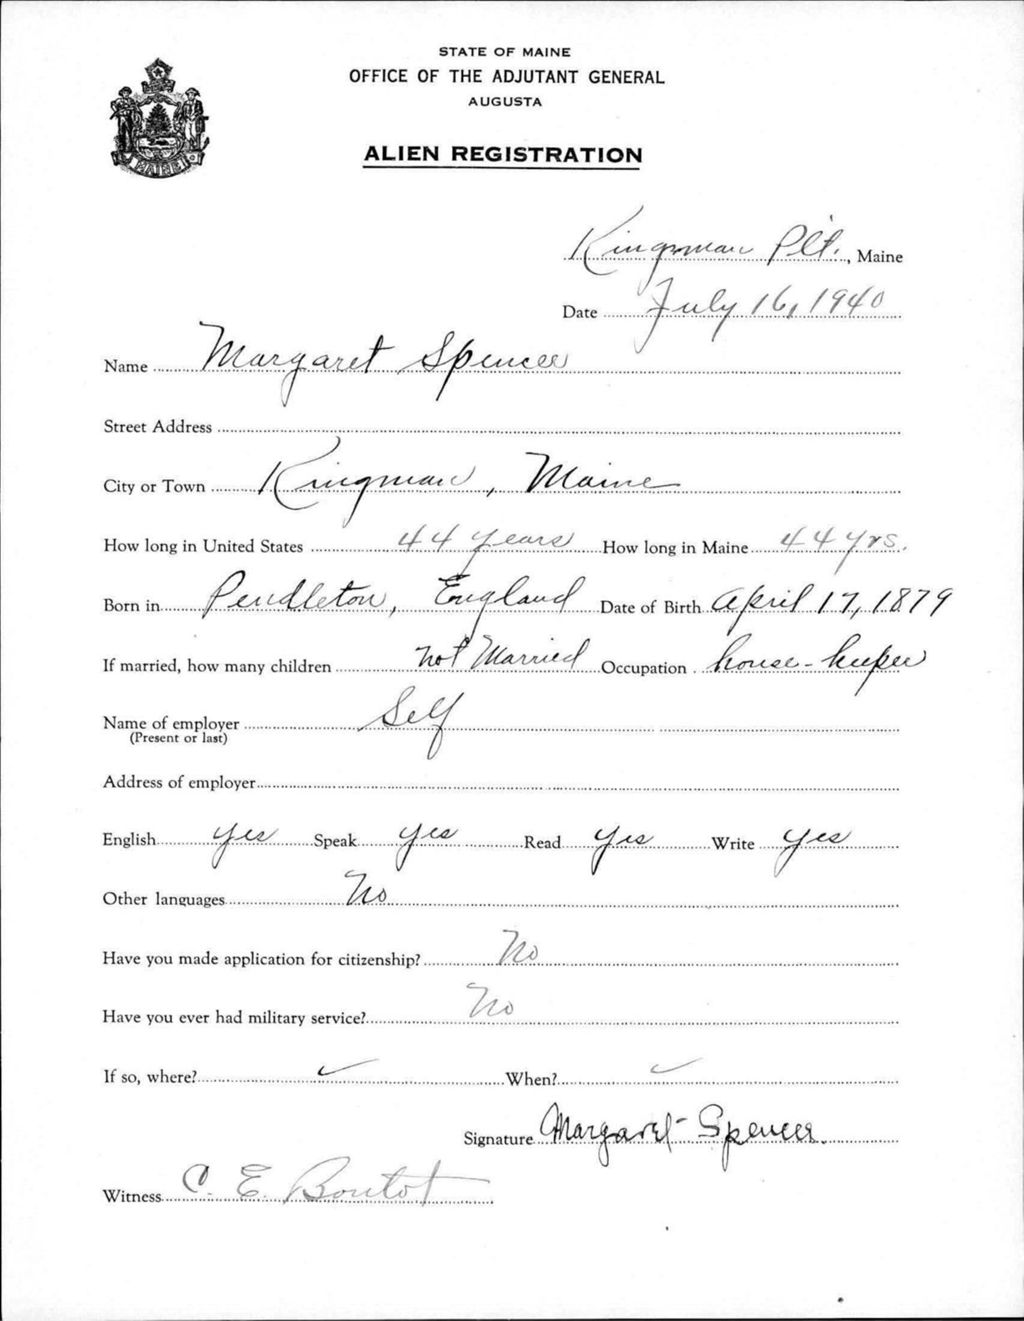 STATE OF MAINE
OFFICE OF THE ADJUTANT GENERAL
AUGUSTA
ALIEN REGISTRATION
MAINE
Kingman Plt., Maine
Date July 16, 1940
Name Margaret Spencer
Street Address
City or Town Kingman, Maine
How long in United States 44 years How long in Maine 44 yrs.
Born in Pendleton, England Date of Birth April 17, 1879
If married, how many children not Married Occupation house-keeper
Name of employer Self
(Present or last)
Address of employer
English yes Speak yes Read yes Write yes
Other languages No
Have you made application for citizenship? No
Have you ever had military service? No
If so, where? When?
Signature Margaret Spencer
Witness C. E. Boutot